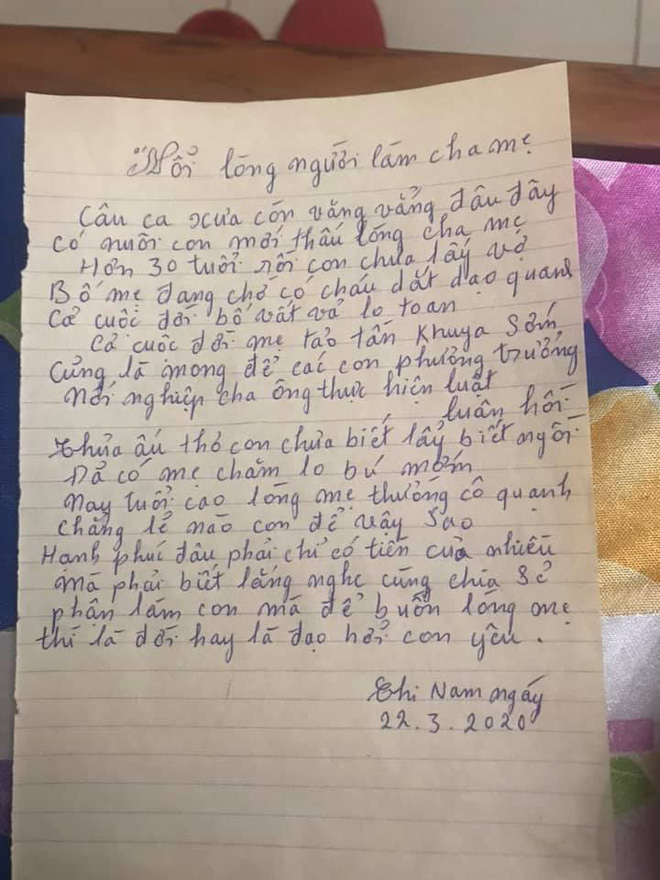 Nỗi lòng người làm cha mẹ
Câu ca xưa còn văng vẳng đâu đây
có nuôi con mới thấu lòng cha mẹ
Hơn 30 tuổi rồi con chưa lấy vợ
Bố mẹ đang chờ có cháu dắt dạo quanh
Cả cuộc đời bố vất vả lo toan
Cả cuộc đời mẹ tảo tần khuya sớm
Cũng là mong để các con phương trưởng
nối nghiệp cha ông thực hiện luật
luân hồi
Thủa ấu thơ con chưa biết lẫy biết ngồi
Đã có mẹ chăm lo bú mớm
Nay tuổi cao lòng mẹ thường cô quạnh
chẳng lẽ nào con để vậy sao
Hạnh phúc đâu phải chỉ có tiền của nhiều
mà phải biết lắng nghe cùng chia sẻ
phận làm con mà để buồn lòng mẹ
thì là đời hay là đạo hởi con yêu.
Chi Nam ngày
22.3.2020